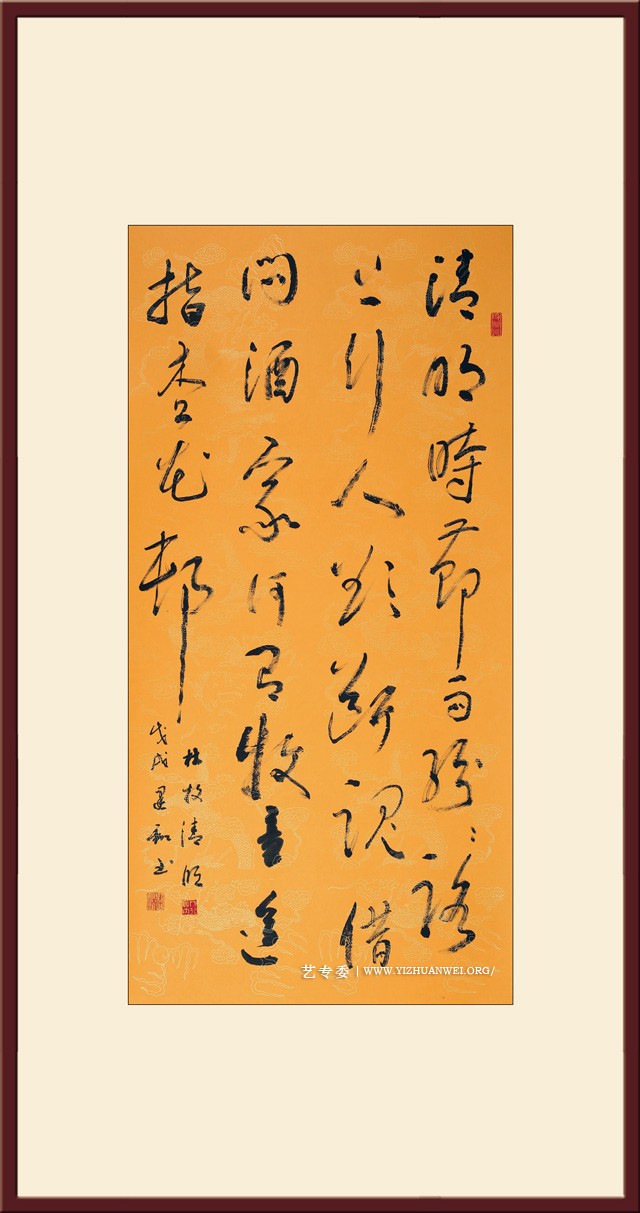 清明時節雨紛〻路
上行人欲斷魂借
問酒家何有牧童遙
指杏花邨
杜牧清明
戊戌
书
艺专委 | WWW.YIZHUANWEI.ORG/